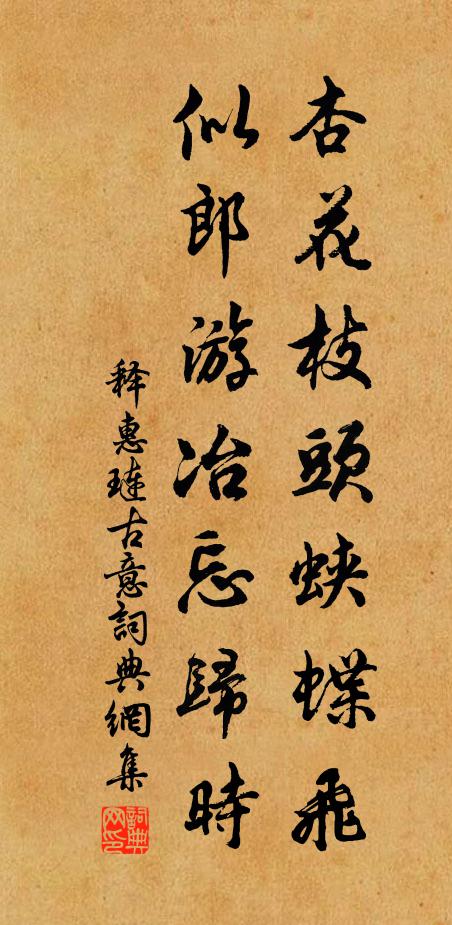 杏花枝頭蛺蝶飛
似郎游冶忘歸時
释惠璉古意詞典網集
詞典网印